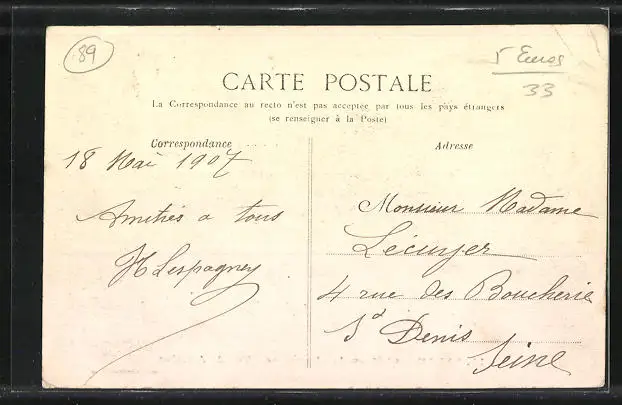 89
5 Euros
33
CARTE POSTALE
La Correspondance au recto n'est pas acceptée par tous les pays étrangers
(se renseigner à la Poste)
Correspondance
18 Mai 1907
Amitiés a tous
H Lespagney
Adresse
Monsieur Madame
Lécuyer
4 rue des Boucherie
St Denis
Seine